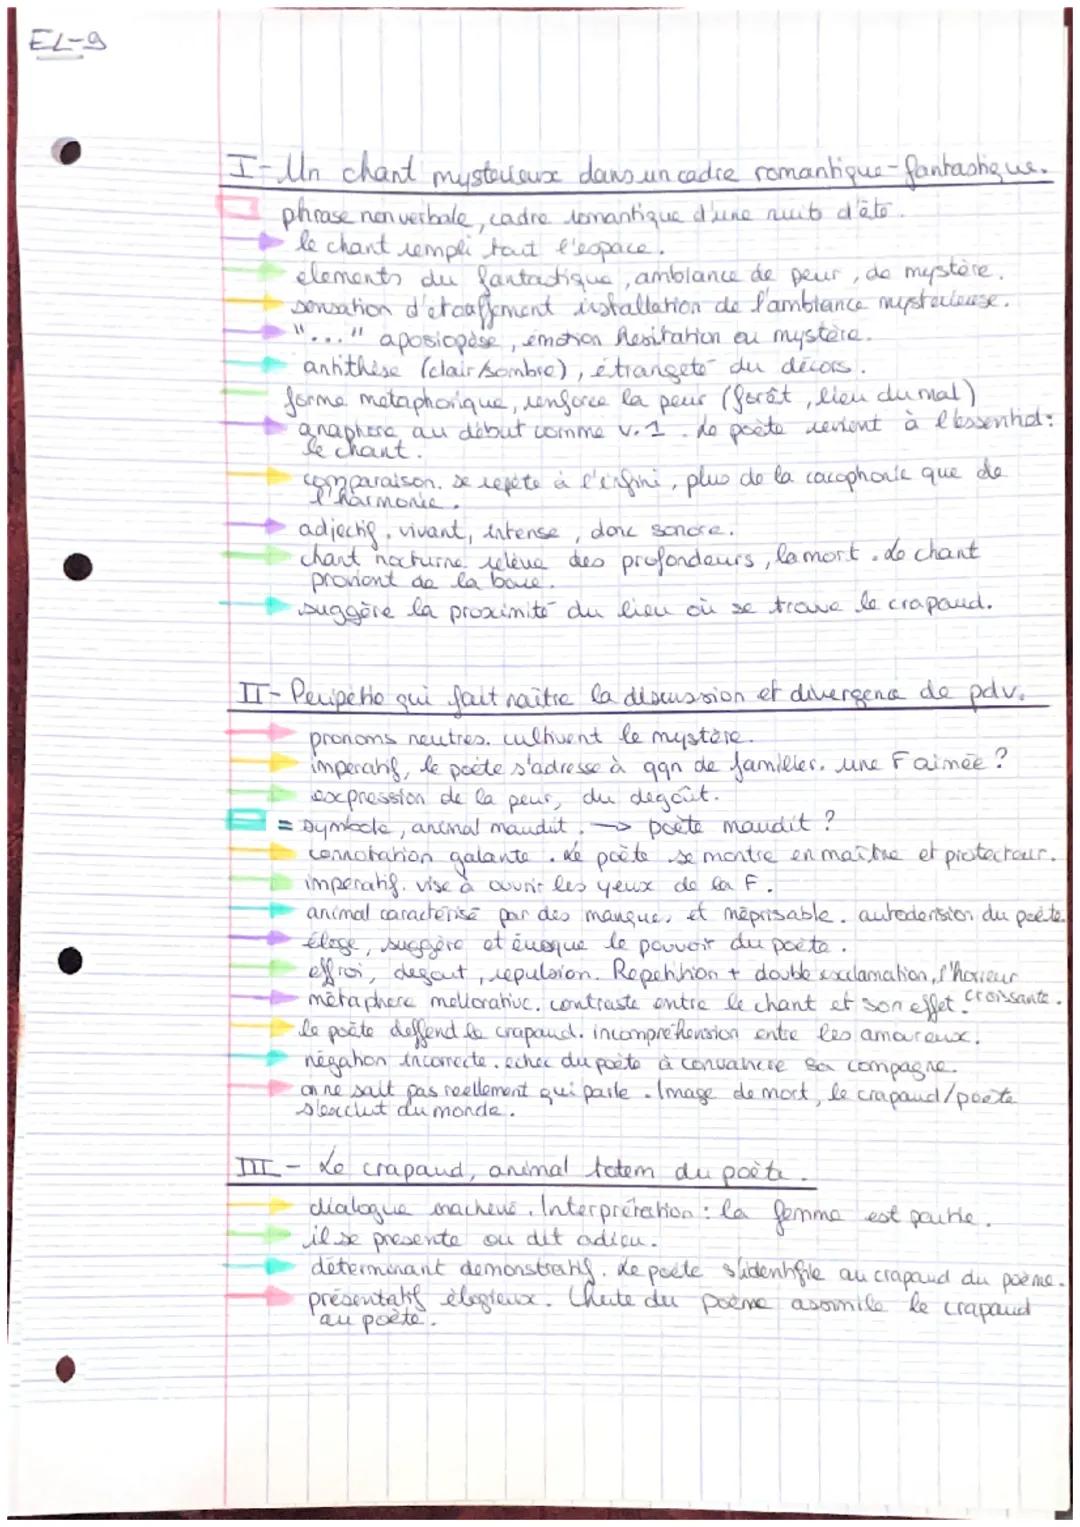 EL-9
I- Un chant mysterieux dans un cadre romantique-fantastique.
phrase non verbale, cadre romantique d'une nuits d'été.
le chant rempli tout l'espace.
elements du fantastique, ambiance de peur, de mystère.
sensation d'étouffement installation de l'ambiance mysterieuse.
"..." aposiopèse, émotion hesitation ou mystère.
antithèse (clair/sombre), étrangeté du décors.
forme métaphorique, renforce la peur (forêt, lieu du mal)
anaphore au début comme v.1. Le poète revient à l'essentiel:
le chant.
comparaison. se repète à l'infini, plus de la cacophonie que de
l'harmonie.
adjectif. vivant, intense, donc sonore.
chant nocturne relève des profondeurs, la mort. Le chant
provient de la boue.
suggère la proximité du lieu où se trouve le crapaud.
II- Peripétie qui fait naître la discussion et divergence de pdv.
pronoms neutres. cultivent le mystère.
imperatif, le poète s'adresse à qqn de familier. une F aimée ?
expression de la peur, du degoût.
= symbole, animal maudit. → poète maudit ?
connotation galante. Le poète se montre en maître et protecteur.
imperatif. vise à ouvrir les yeux de la F.
animal caractérisé par des manques et méprisable. autoderision du poète.
éloge, suggère et évoque le pouvoir du poète.
effroi, degout, repulsion. Repetition + double exclamation, l'horreur
croissante.
métaphore meliorative. contraste entre le chant et son effet.
le poète deffend le crapaud. incompréhension entre les amoureux.
négation incorrecte. echec du poète à convaincre sa compagne.
on ne sait pas reellement qui parle. Image de mort, le crapaud/poète
s'exclut du monde.
III- Le crapaud, animal totem du poète.
dialogue inachevé. Interprétation : la femme est partie.
il se presente ou dit adieu.
déterminant demonstratif. Le poète s'identifie au crapaud du poème.
présentatif élegieux. Chute du poème assimile le crapaud
au poète.